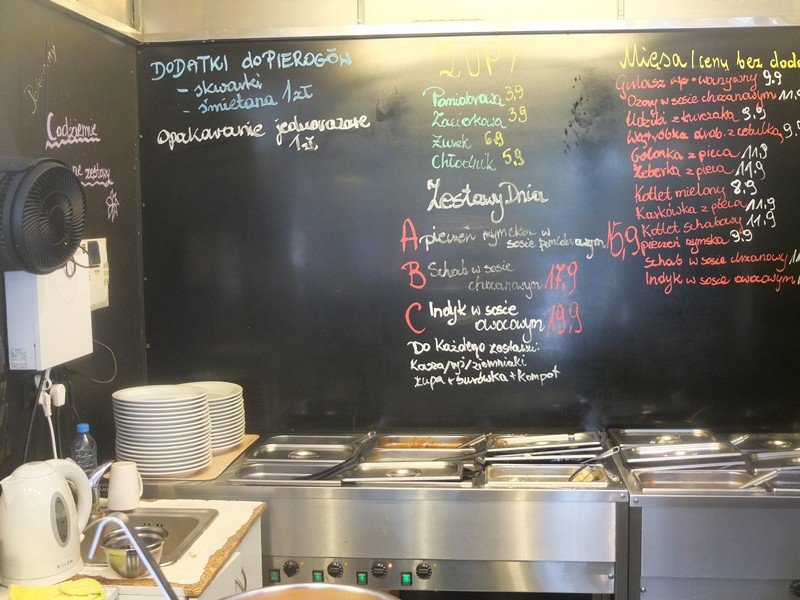 Codziennie
zestawy
DODATKI do PIEROGÓW
- skwarki
- śmietana 1 zł
Opakowanie jednorazowe
1 zł
ZUPY
Pomidorowa 3.9
Zacierkowa 3.9
Żurek 6.9
Chłodnik 5.9
Zestawy Dnia
A pieczeń rzymska w
sosie pomidorowym 15,9
B Schab w sosie
chrzanowym 17,9
C Indyk w sosie
owocowym 19,9
Do każdego zestawu:
Kasza/ryż/ziemniaki
zupa + surówka + kompot
Mięsa/ceny bez
Gulasz wp-warzywny 9.9
Ozory w sosie chrzanowym
Udziki z kurczaka 9.9
Wątróbka drob. z cebulką
Golonka z pieca 11,9
Żeberka z pieca 11,9
Kotlet mielony 8,9
Karkówka z pieca 11,9
Kotlet schabowy 11,9
pieczeń rzymska 9.9
Schab w sosie chrzanowym
Indyk w sosie owocowym